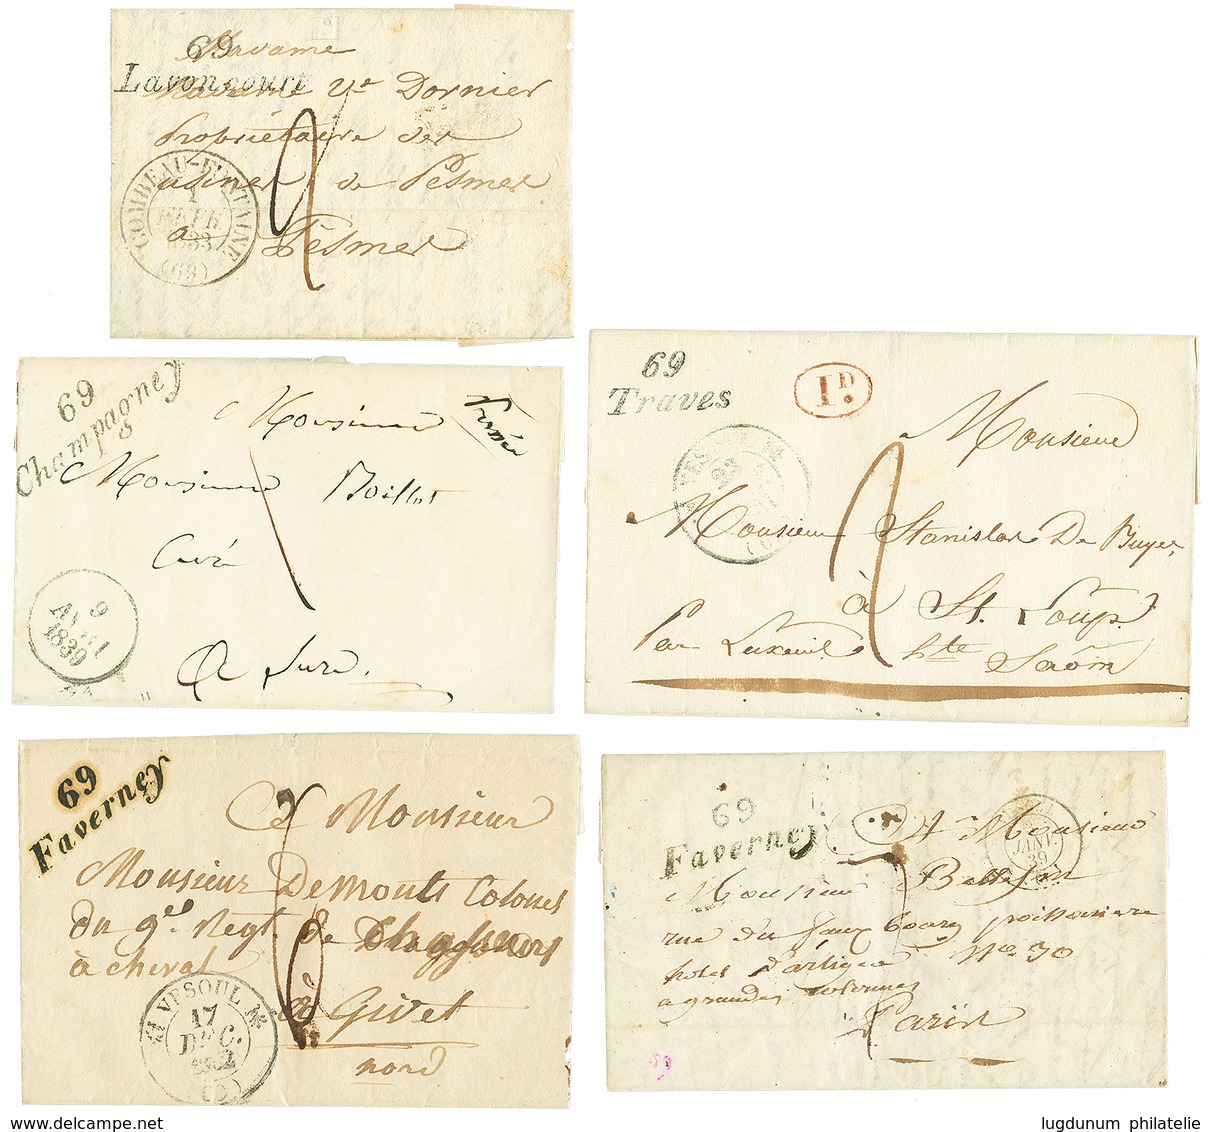 69
Lavoncourt
Madame
Madame Ve Dornier
Propriétaire des
usines de Pesmes
à Pesmes
COMBEAU-FONTAINE
1
FEVR
1833
(69)
69
Champagney
Monsieur
Monsieur Boillot
Curé
A Lure.
9
AVRIL
1839
69
Traves
1D.
Monsieur
Monsieur Stanislas De Buyer,
à St. Loup
Par Luxeuil hte Saône
23
69
Faverney
A Monsieur
Monsieur Demonts Colonel
du 9e Regt. de Draggons
à cheval
à Givet
nord
VESOUL
17
DEC.
69
Faverney
A Monsieur
Monsieur
rue du faux bourg poissonniere
hotel d'artique No 30
a grandes colonnes
Paris
JANV.
39
lugdunum philatelie